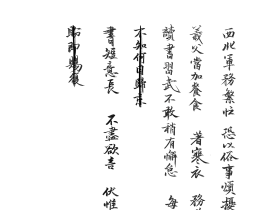 西北軍務繁忙 恐以俗事煩擾
義父當加餐食 著寒衣 務
讀書習武不敢稍有懈怠 每
不知何日歸京
書短意長 不盡欲言 伏惟
珍即賜覆